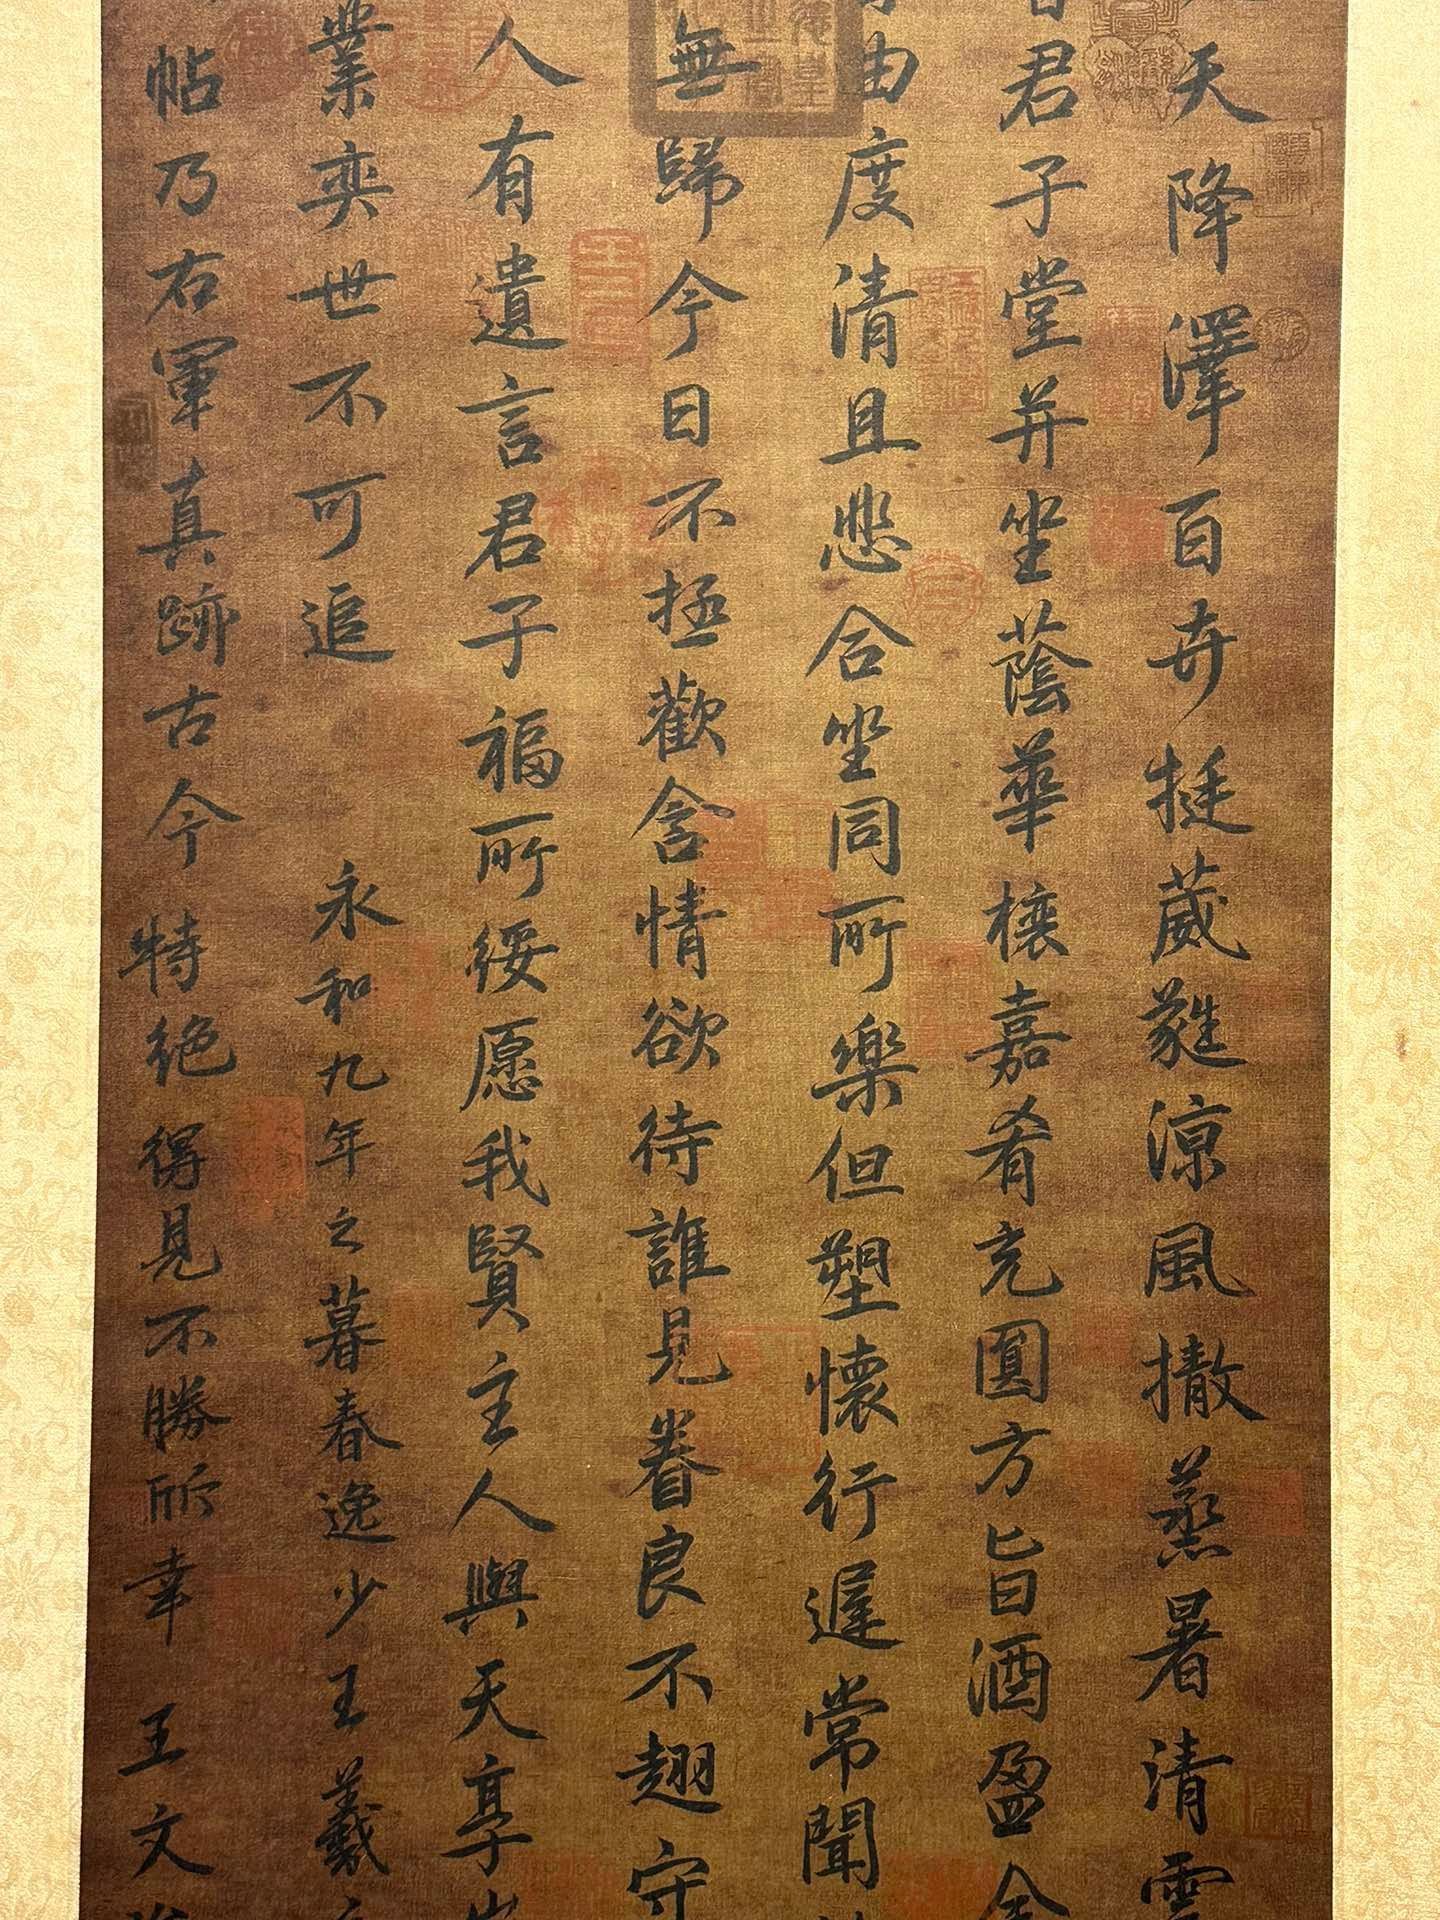 天降澤百卉挺葳蕤涼風撤蒸暑清雲
君子堂并坐蔭華榱嘉肴充圓方旨酒盈金
由度清且悲合坐同所樂但塑懷行遲常聞
無歸今日不極歡含情欲待誰見眷良不翅守
人有遺言君子福所綏愿我賢主人與天享
業奕世不可追 永和九年之暮春逸少王羲
帖乃右軍真跡古今特絕得見不勝所幸 王文